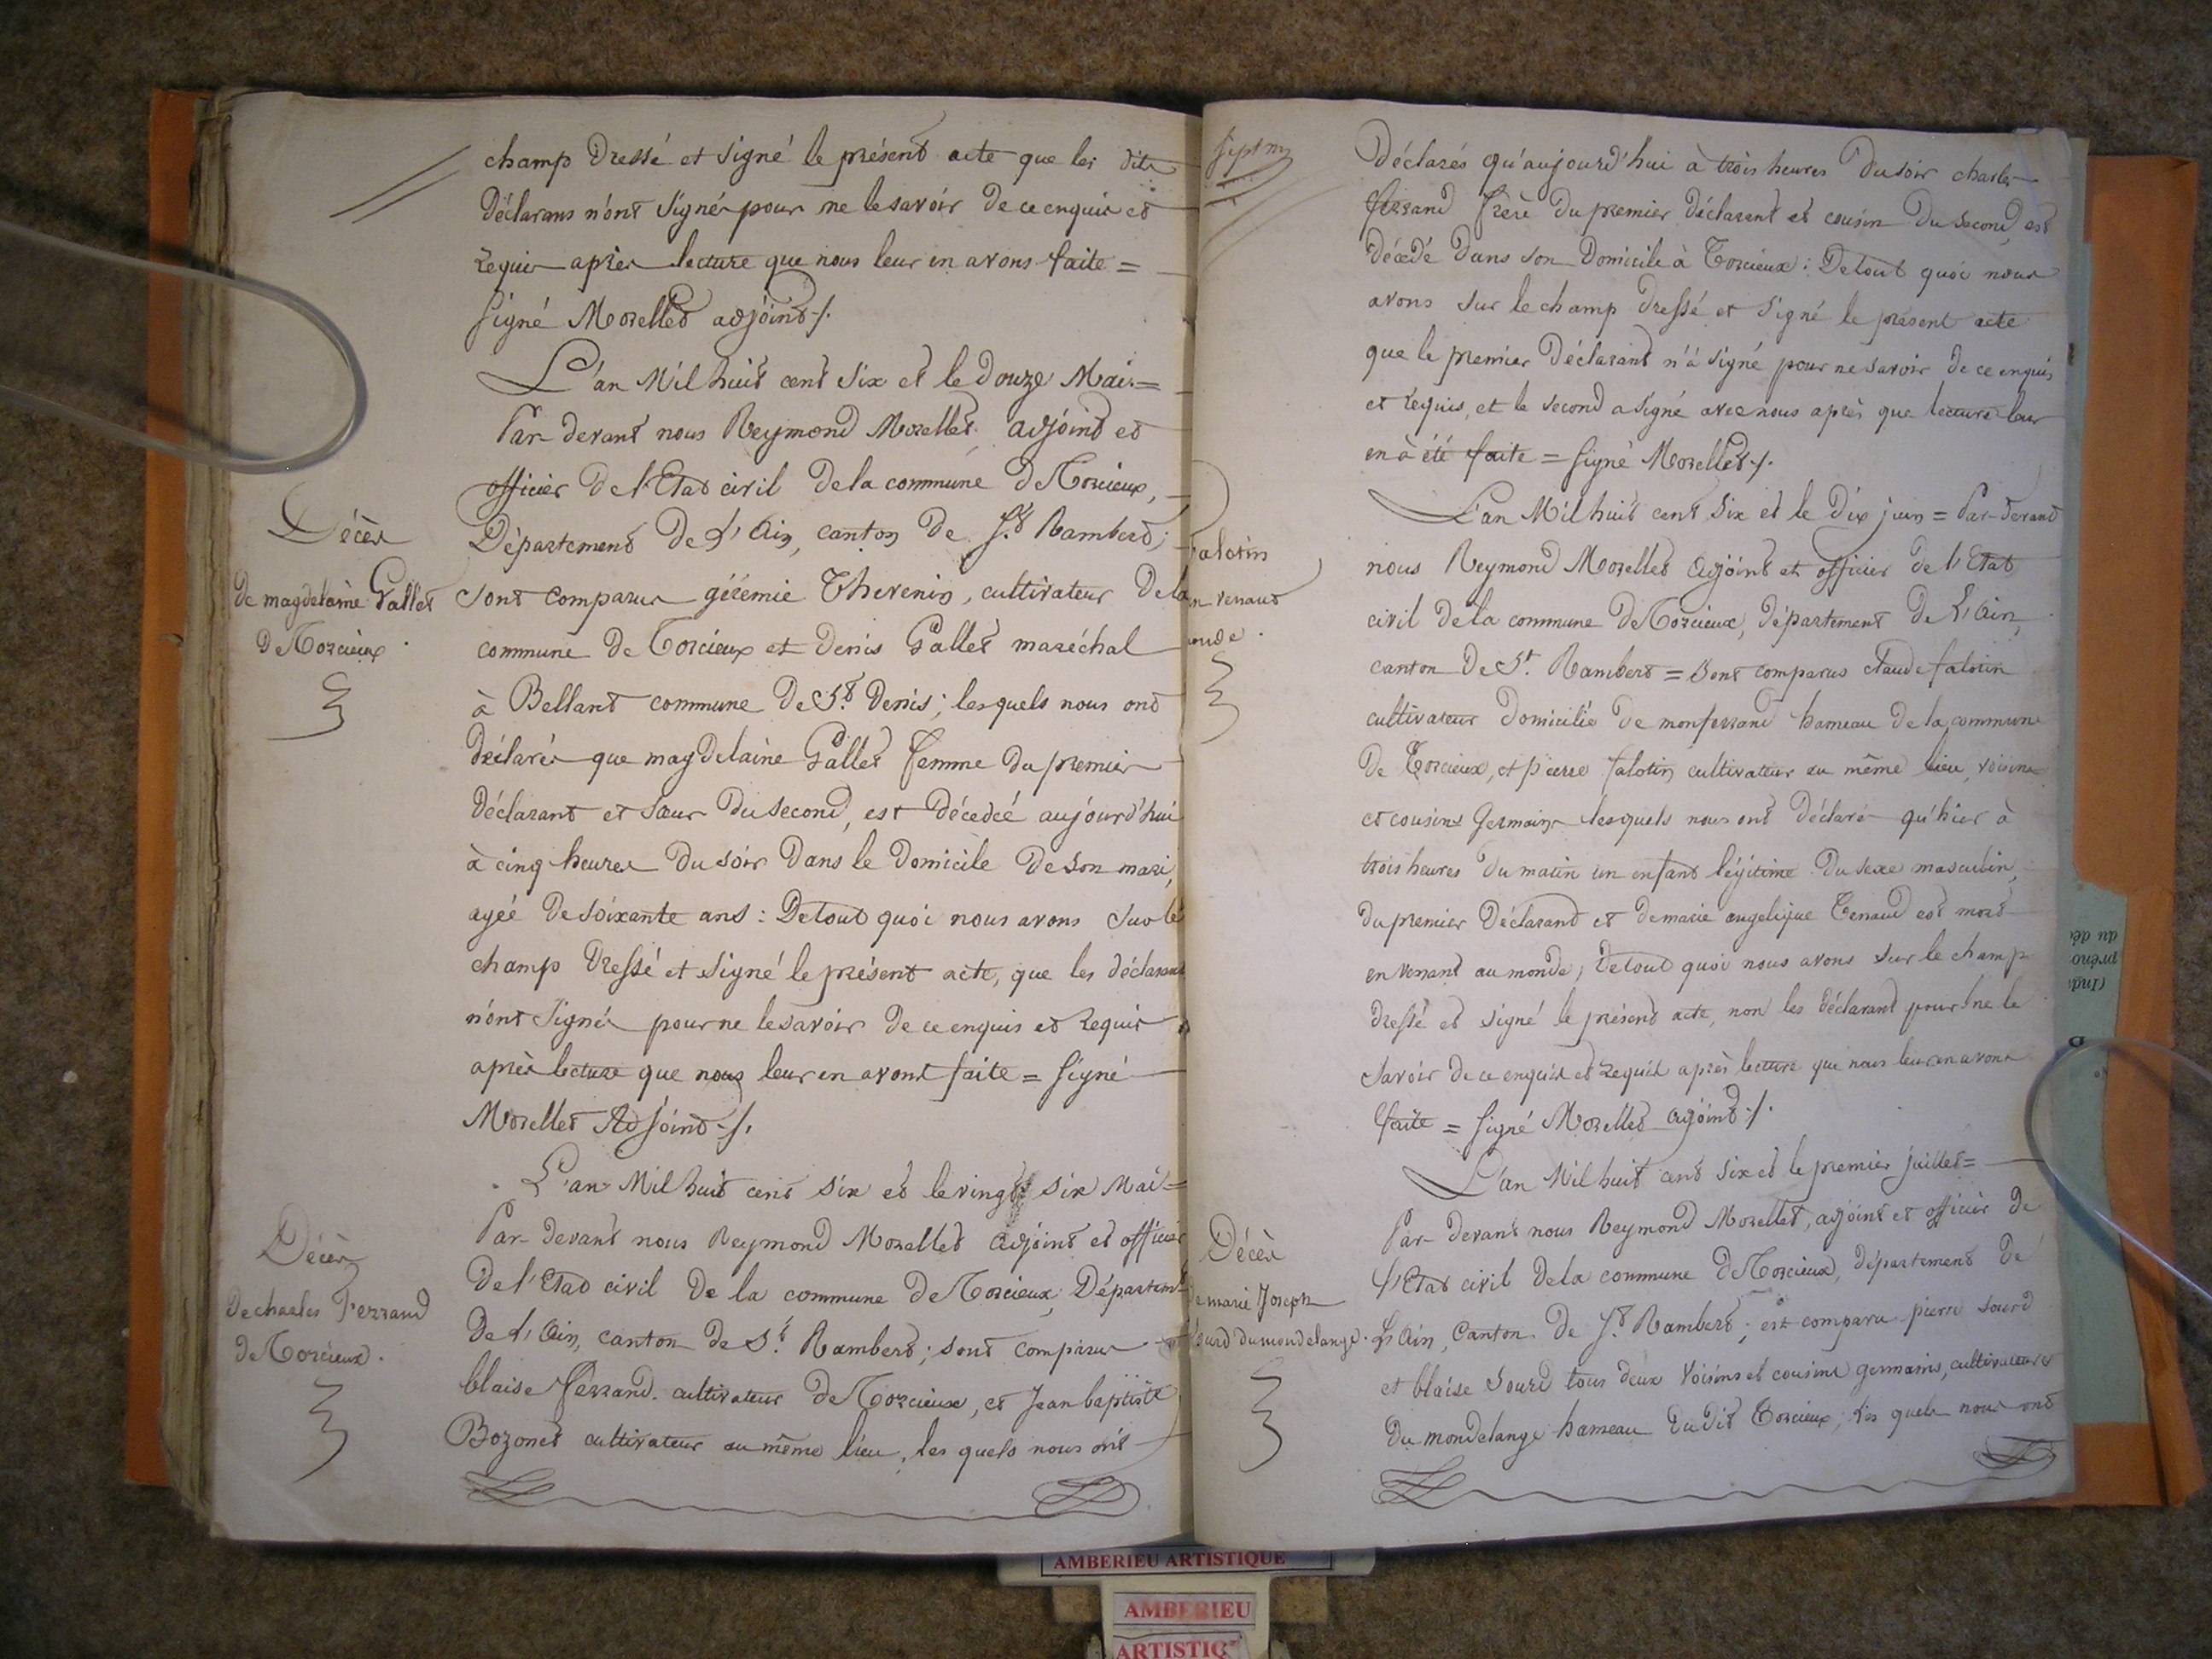 champ dressé et signé le présent acte que les dits
déclarans n'ont signés pour ne le savoir de ce enquis et
requis après lecture que nous leur en avons faite =
signé Morellet adjoint ./.
L'an Mil huit cent six et le douze Mai =
Par-devant nous Reymond Morellet, adjoint et
officier de l'Etat civil de la commune de Torcieux,
Décès
Département de L'Ain, canton de St Rambert;
de magdelaine Gallet
sont comparus gérémie Thevenin, cultivateur de la
de Torcieux .
commune de Torcieux et denis Gallet maréchal
à Bellant commune de St. denis; lesquels nous ont
déclarés que magdelaine Gallet femme du premier
déclarant et sœur du second, est décedcé aujourd'hui
à cinq heures du soir dans le domicile de son mari,
ageé de soixante ans : De tout quoi nous avons sur le
champ dressé et signé le présent acte, que les déclarans
n'ont signés pour ne le savoir de ce enquis et requis
après lecture que nous leur en avons faite = signé
Morellet Adjoint ./.
L'an Mil huit cent six et le vingt six Mai =
Par-devant nous Reymond Morellet adjoint et officier
Décès
de l'Etat civil de la commune de Torcieux, Départemt
de charles Ferrand
de L'Ain, canton de St. Rambert; sont comparus
de Torcieux .
blaise Ferrand cultivateur de Torcieux, et Jean baptiste
Bozonet cultivateur au même lieu, les quels nous ont
sept
déclarés qu'aujourd'hui à trois heures du soir charles
ferrand frère du premier déclarent et cousin du second, est
décédé dans son domicile à Torcieux : De tout quoi nous
avons sur le champ dressé et signé le présent acte
que le premier déclarant n'à signé pour ne savoir de ce enquis
et requis, et le second a signé avec nous après que lecture leur
en à été faite = signé Morellet ./.
L'an Mil huit cent six et le dix juin = Par-devant
falotin
nous Reymond Morellet adjoint et officier de l'Etat
en venant
civil de la commune de Torcieux, département de L'Ain,
monde .
canton de St. Rambert = Sont comparus claude falotin
cultivateur domicilié de monferrand hameau de la commune
de Torcieux, et pierre falotin cultivateur au même lieu, voisins
et cousins Germains lesquels nous ont déclaré qu'hier à
trois heures du matin un enfant légitime du sexe masculin,
du premier déclarant et de marie angelique Tenaud est mort
en venant au monde, de tout quoi nous avons sur le champ
dressé et signé le présent acte, non les déclarant pour ne le
savoir de ce enquis et requis après lecture que nous leur en avons
faite = signé Morellet adjoint ./.
L'an Mil huit cent six et le premier juillet =
Par-devant nous Reymond Morellet, adjoint et officier de
Décès
l'Etat civil de la commune de Torcieux, département de
de marie Joseph
L'Ain, Canton de St. Rambert; est comparu pierre sourd
sourd du mondelange .
et blaise sourd tous deux voisins et cousins germains, cultivateurs
du mondelange hameau du dit Torcieux; les quels nous ont
du dé
préno
(Indi
AMBERIEU ARTISTIQUE
AMBERIEU
ARTISTIQ